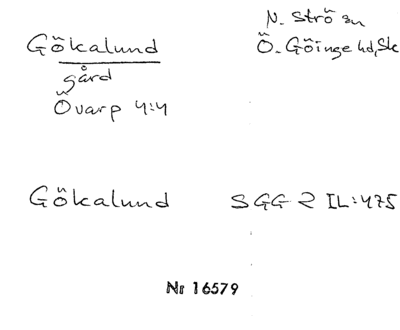 N. Strö sn
Gökalund Ö. Göinge hd, Sk
gård
Övarp 4:4
Gökalund SGG 2 IL:475
Nr 16579